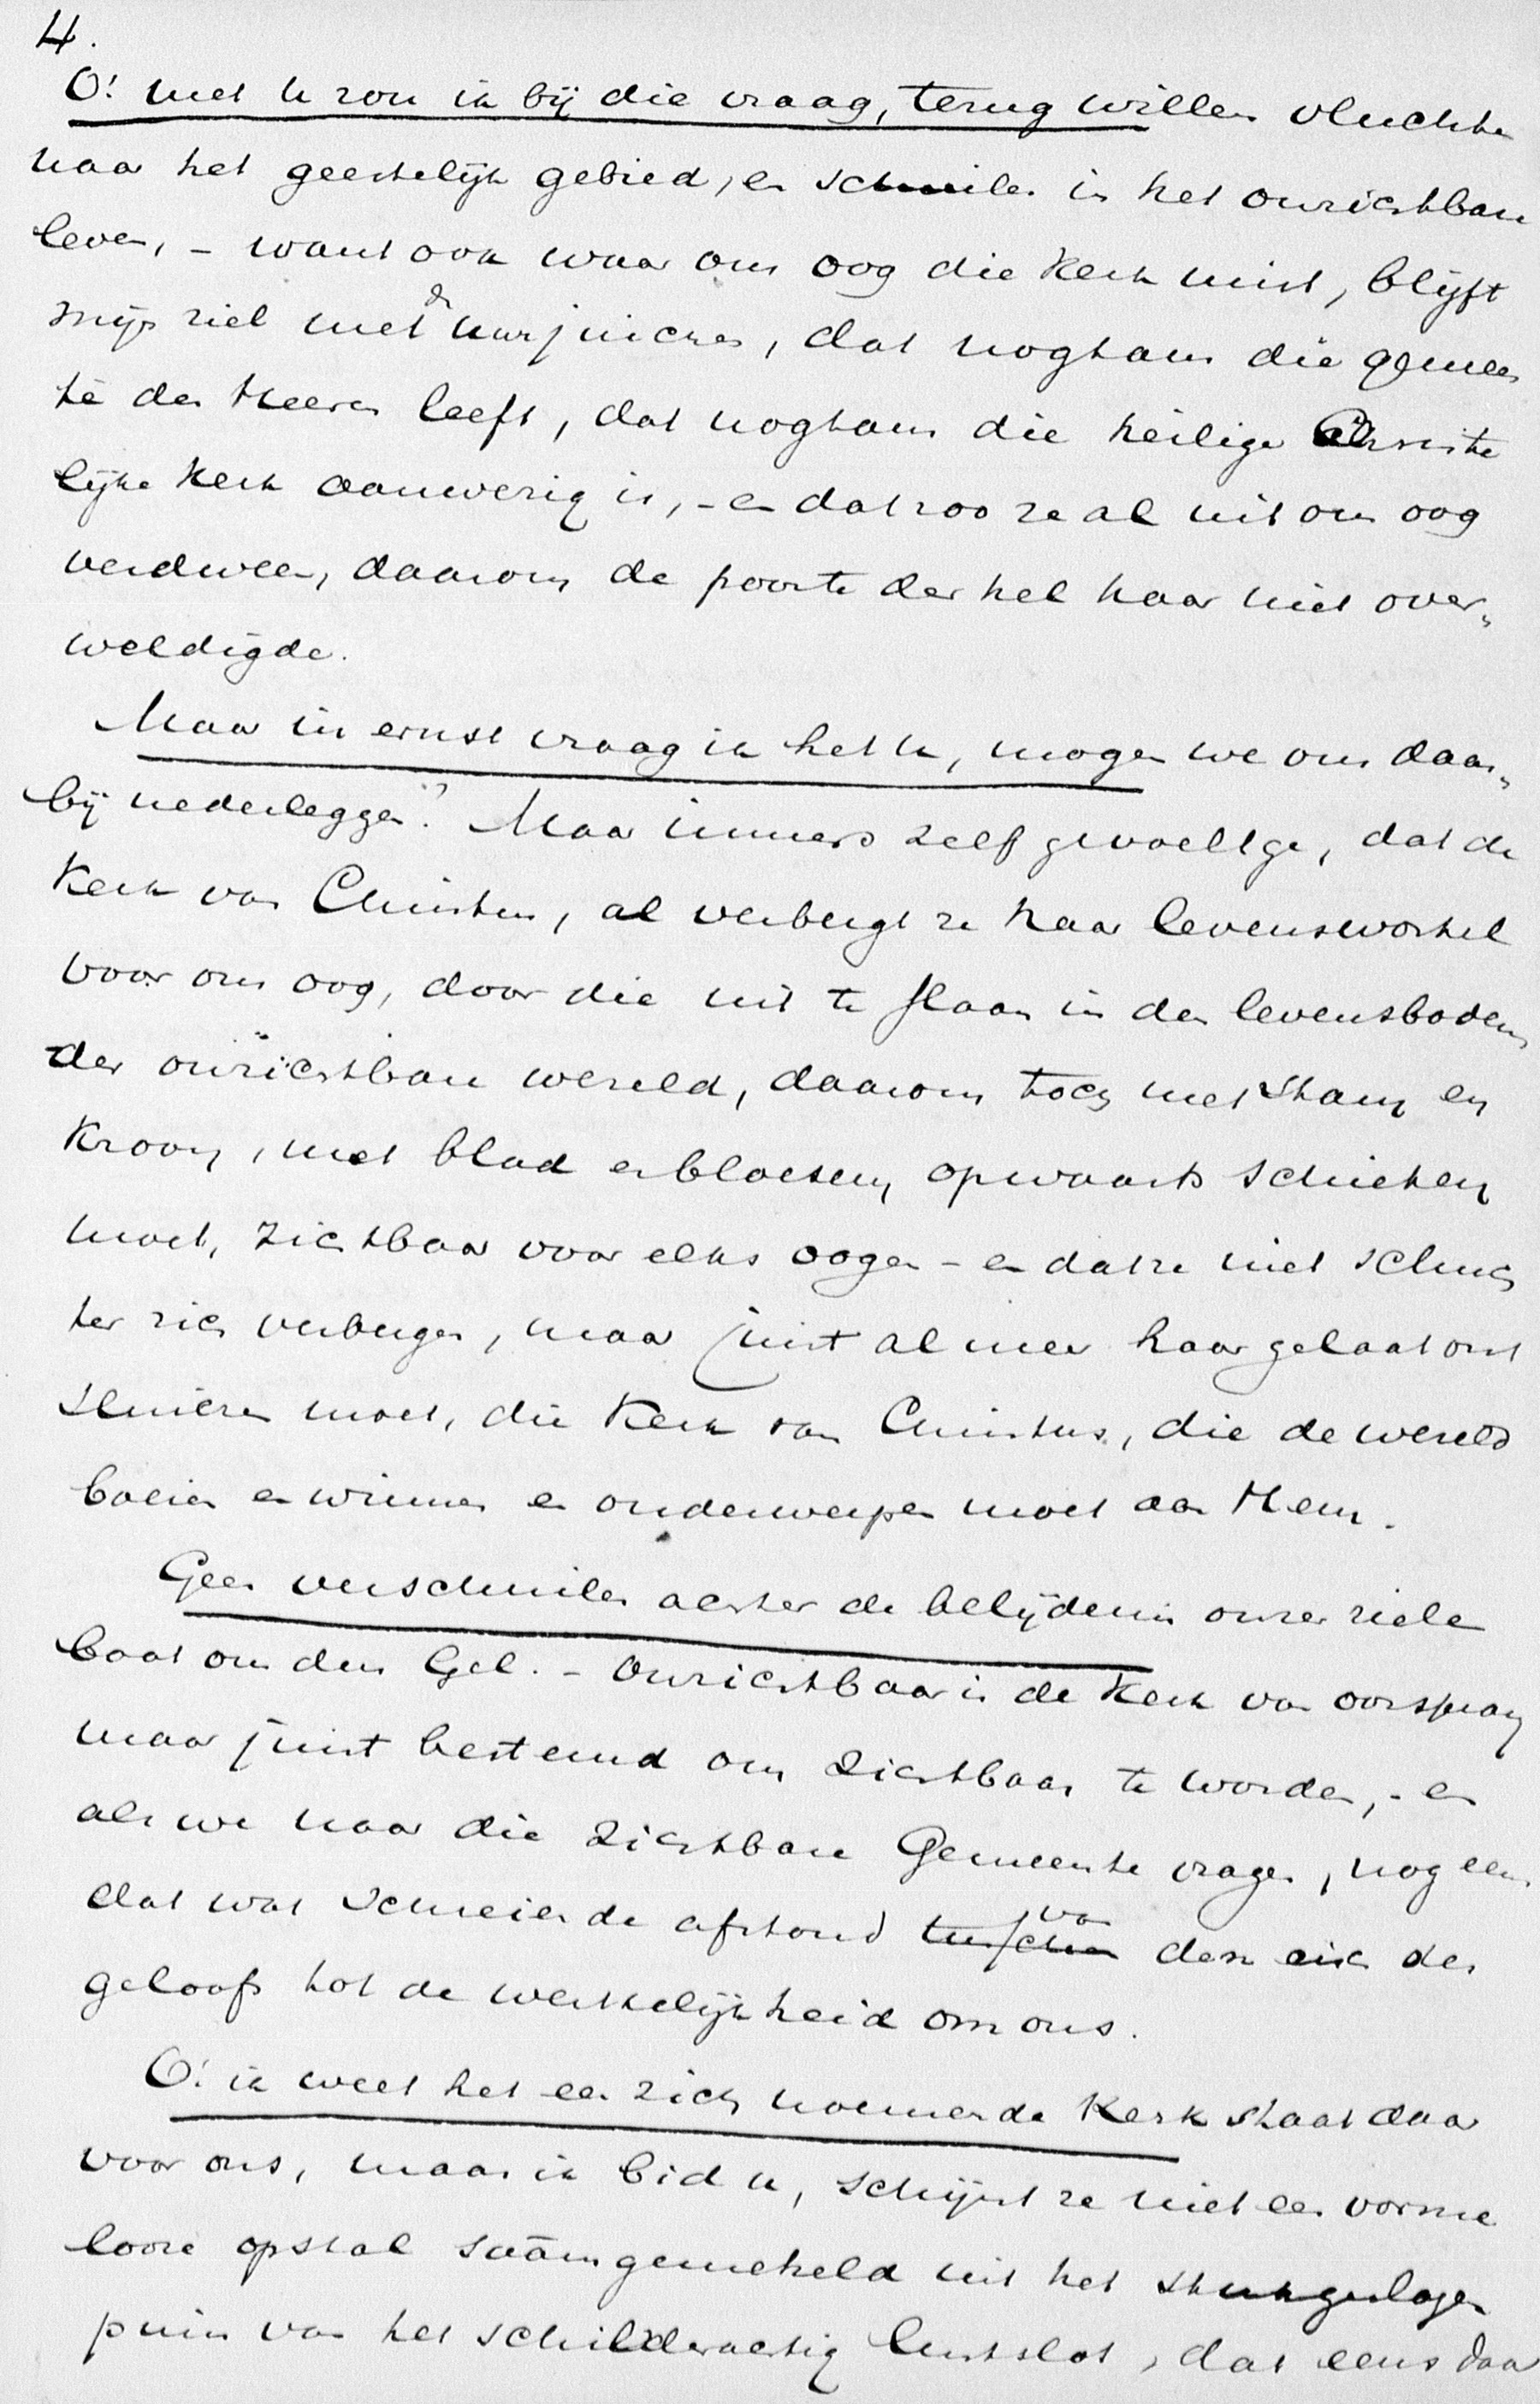 4.
O! met u zou ik bij die vraag, terug willen vluchten
naar het geestelijk gebied, en schuilen in het onzichtbare
leven, – want ook waar ons oog die Kerk mist, blijft
mijn ziel met de uwe juichen, dat nogtans die gemeen
te des Heeren leeft, dat nogtans die heilige Christe
lijke Kerk aanwezig is, – en dat zoo ze al uit ons oog
verdween, daarom de poorte der hel haar niet over„
weldigde.
Maar in ernst vraag ik het u, mogen we ons daar„
bij nederleggen? Maar immers zelf gevoelt ge, dat de
Kerk van Christus, al verbergt ze haar levenswortel
voor ons oog, door die uit te slaan in den levensbodem
der onzichtbare wereld, daarom toch met stam en
Kroon, met blad en bloesem, opwaarts schieten
moet, zichtbaar voor elks oogen – en dat ze niet schuch
ter zich verbergen, maar juist al meer haar gelaat ont
sluieren moet, die Kerk van Christus, die de wereld
boeien en winnen en onderwerpen moet aan Hem.
Geen verschuilen achter de belijdenis onzer ziele
baat ons dus Gel. – Onzichtbaar is de Kerk van oorsprong
maar juist bestemd om zichtbaar te worden, – en
als we naar die zichtbare Gemeente vragen, nog eens
dat wat schreiende afstand tusschen van den eisch des
geloofs tot de werkelijkheid om ons.
O! ik weet het een zich noemende Kerk staat daar
voor ons, maar ik bid u, schijnt ze niet een vorme
looze opstal saâmgemetseld uit het stukgeslagen
puin van het schilderachtig lustslot, dat eens daar